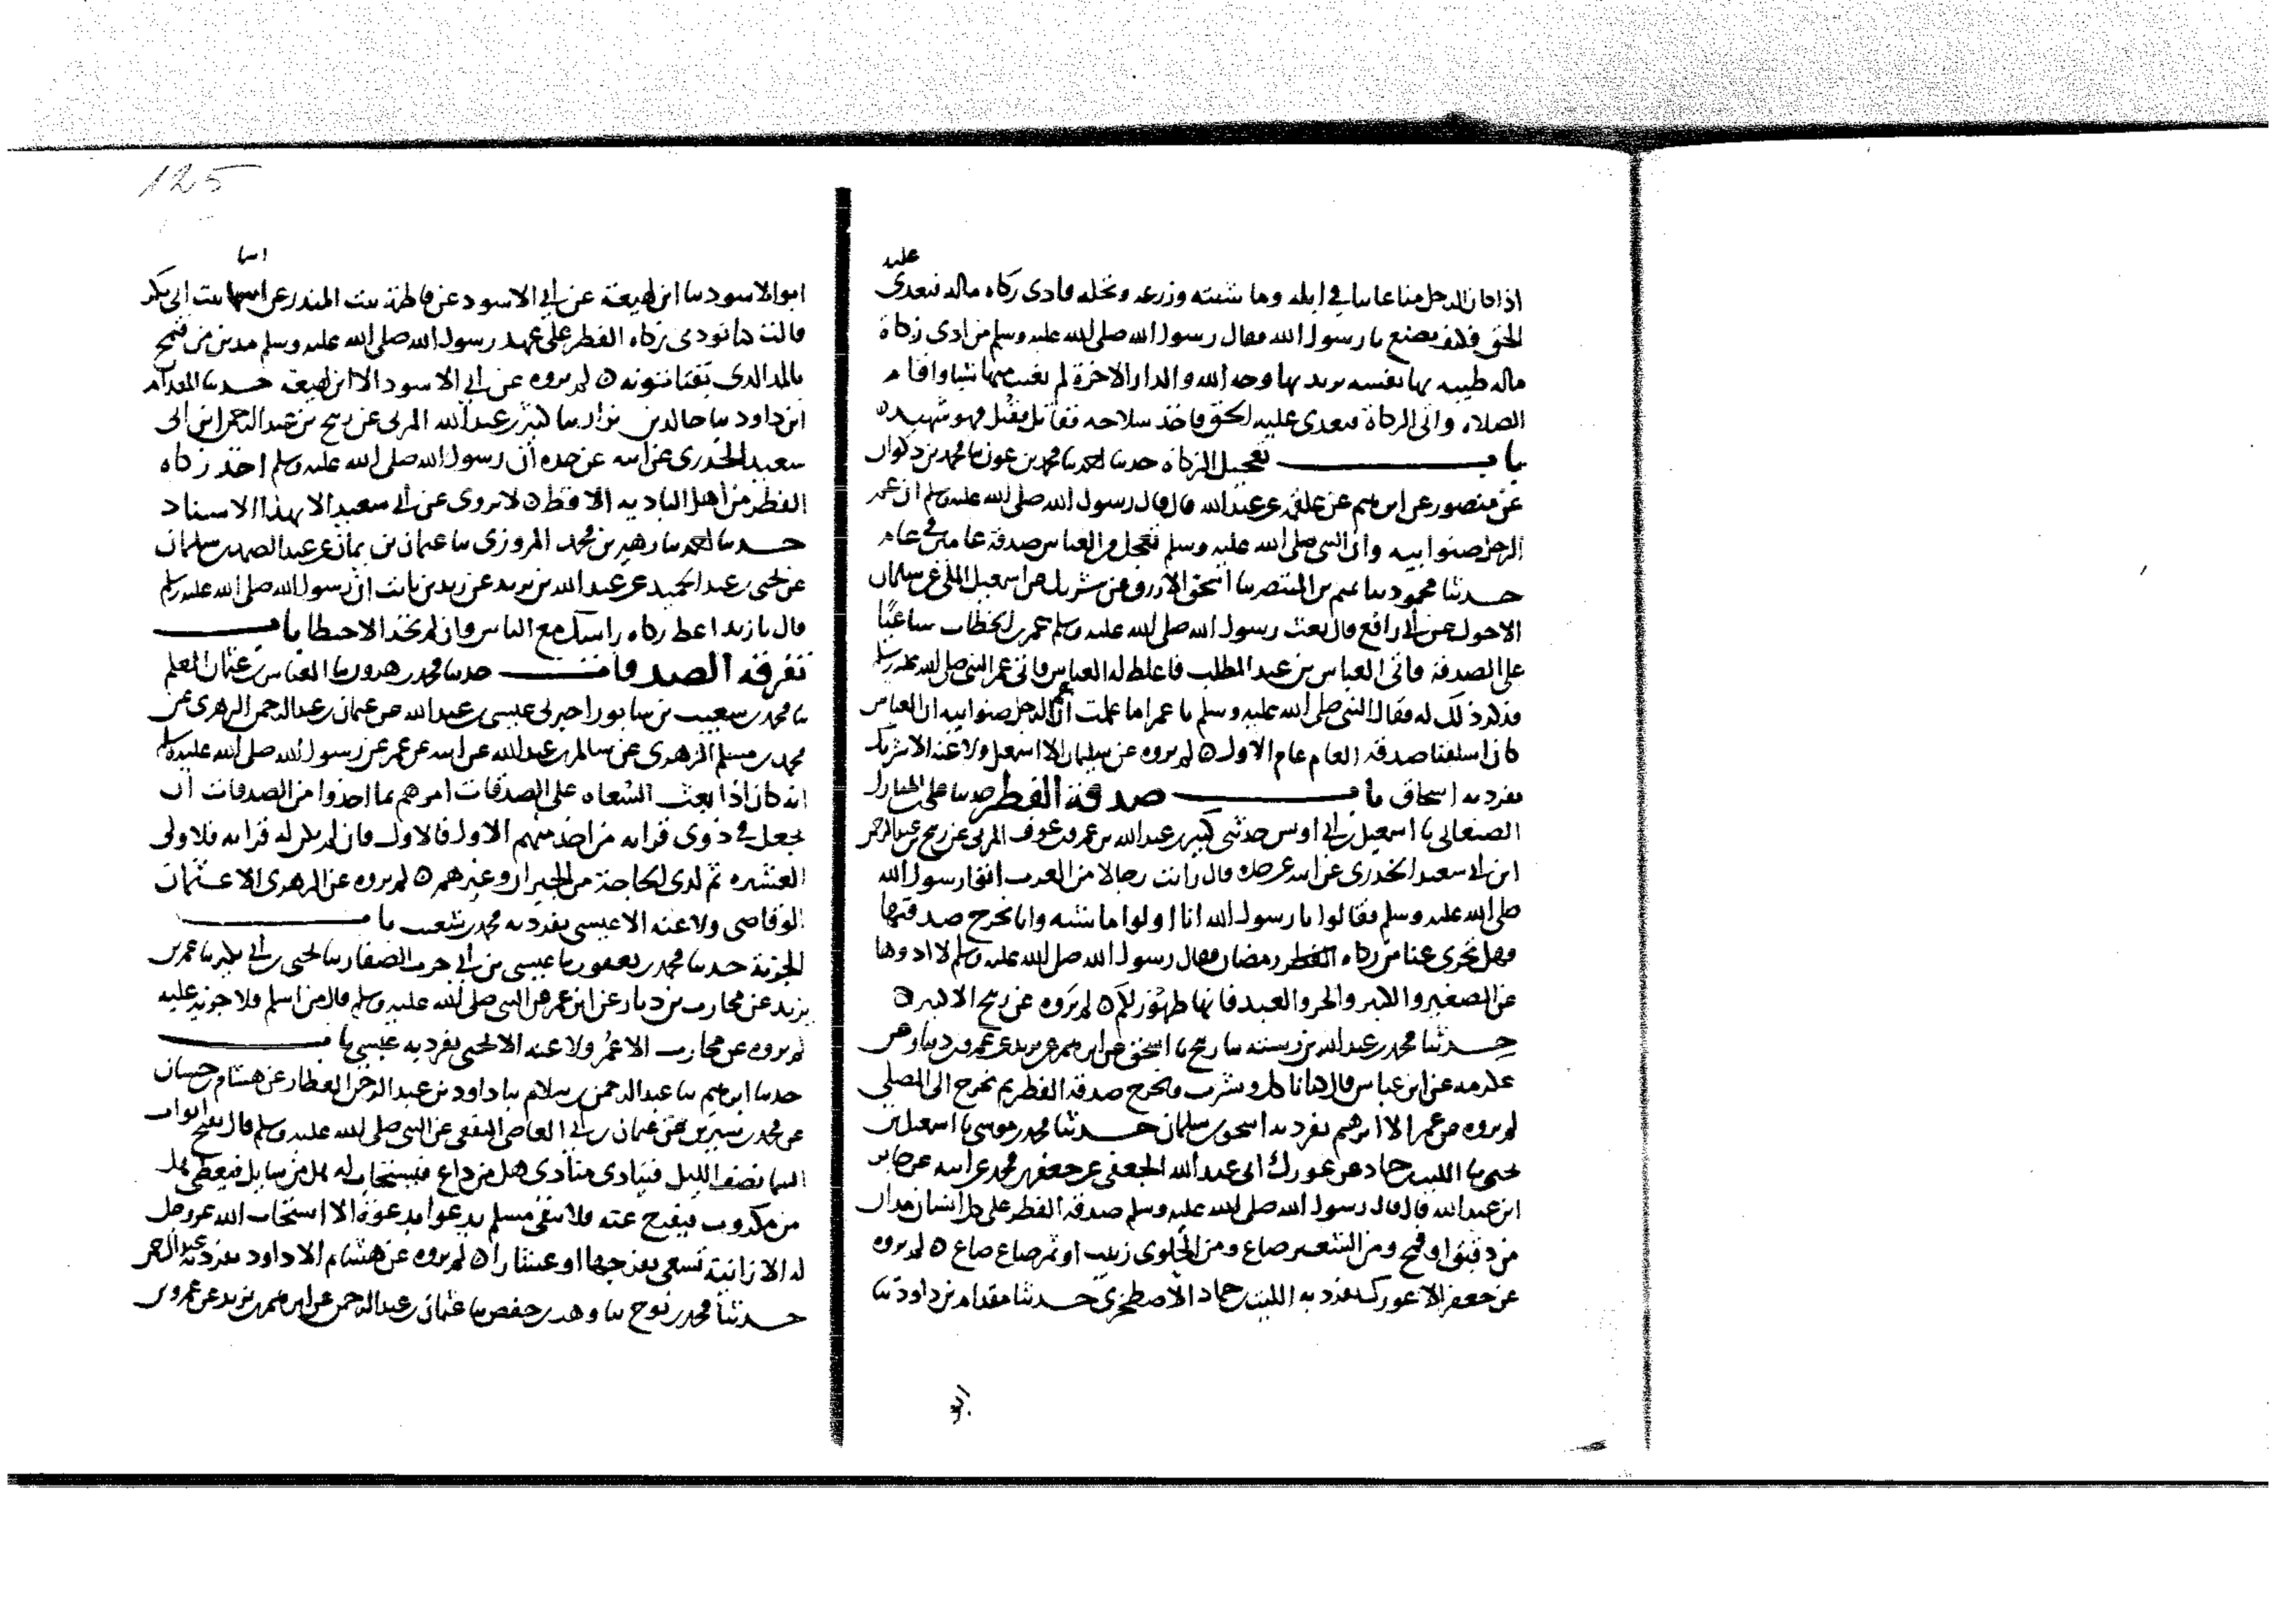 عليه
اذا كان الرجل منا غائبا في ابله وماشيته وزرعه ونخله فادى زكاة ماله فتعدى
الحق فكيف يصنع يا رسول الله فقال رسول الله صلى الله عليه وسلم من ادى زكاة
ماله طيبه بها نفسه يريد بها وجه الله والدار الاخرة لم يغيب منها شيا واقام
الصلاه واتى الزكاة فتعدى عليه الحق فاخذ سلاحه فقاتل فقتل فهو شهيد ه
باب تعجيل الزكاة حدثنا احمد نا محمد بن عون نا محمد بن ذكوان
عن منصور عن ابرهيم عن علقمة عن عبد الله قال قال رسول الله صلى الله عليه وسلم ان عم
الرجل صنو ابيه وان النبي صلى الله عليه وسلم تعجل من العباس صدقة عامين في عام
حدثنا محمود نا تميم بن المنتصر نا اسحق الازرق عن شريك عن اسمعيل المكي عن سليمان
الاحول عن ابي رافع قال بعث رسول الله صلى الله عليه وسلم عمر بن الخطاب ساعيا
على الصدقة فاتى العباس بن عبد المطلب فاغلظ له العباس فاتى عمر النبي صلى الله عليه وسلم
فذكر ذلك له فقال النبي صلى الله عليه وسلم يا عمر اما علمت ان عم الرجل صنو ابيه ان العباس
كان اسلفنا صدقة العام عام الاول ه لم يروه عن سليمان الا اسمعيل ولا عنه الا شريك
تفرد به اسحاق باب صدقة الفطر حدثنا علي بن المبارك
الصنعاني نا اسمعيل بن ابي اويس حدثني كثير بن عبد الله بن عمرو بن عوف المزني عن ربيح بن عبد الرحمن
ابن ابي سعيد الخدري عن ابيه عن جده قال رايت رجالا من العرب اتوا رسول الله
صلى الله عليه وسلم فقالوا يا رسول الله انا اولوا ماشيه وانا نخرج صدقتها
فهل تجزى عنا من زكاه الفطر رمضان فقال رسول الله صلى الله عليه وسلم لا ادوها
عن الصغير والكبير والحر والعبد فانها طهور لكم ه لم يروه عن ربيح الا كثير ه
حدثنا محمد بن عبد الله بن رسته نا اسحق عن ابرهيم بن يزيد عن عمرو بن دينار عن
عكرمه عن ابن عباس قال كانا ناكل ونشرب ونخرج صدقة الفطر ثم نخرج الى المصلى
لم يروه عن عمرو الا ابرهيم تفرد به اسحق بن سليمان حدثنا محمد بن موسى نا اسمعيل بن
يحيى نا الليث بن حماد عن غورك ابي عبد الله الجعفي عن جعفر بن محمد عن ابيه عن جابر
ابن عبد الله قال قال رسول الله صلى الله عليه وسلم صدقة الفطر على كل انسان مدان
من دقيق او قمح ومن الشعير صاع ومن الحلوى زبيب او تمر صاع صاع ه لم يروه
عن جعفر الا غورك تفرد به الليث بن حماد الاصطخري حدثنا مقدام بن داود نا
125
اسما
ابو الاسود نا ابن لهيعة عن ابي الاسود عن فاطمة بنت المنذر عن اسما بنت ابي بكر
قالت كنا نودى زكاه الفطر على عهد رسول الله صلى الله عليه وسلم مدين من قمح
بالمد الذي تقتاتونه ه لم يروه عن ابي الاسود الا ابن لهيعة حدثنا المقدام
ابن داود نا خالد بن نزار نا كثير بن عبد الله المزني عن ربيح بن عبد الرحمن ابن ابي
سعيد الخدري عن ابيه عن جده ان رسول الله صلى الله عليه وسلم اخذ زكاه
الفطر من اهل الباديه الاقط ه لا يروى عن ابي سعيد الا بهذا الاسناد
حدثنا احمد نا زهير بن محمد المروزي نا عثمان بن يمان عن عبد الصمد بن سليمان
عن يحيى بن عبد الحميد عن عبد الله بن يزيد عن زيد بن ثابت ان رسول الله صلى الله عليه وسلم
قال يا زيد اعط زكاه راسك مع الناس وان لم تجد الا حنطا باب
تفرقة الصدقات حدثنا محمد بن هرون نا العباس بن عثمان المعلم
نا محمد بن شعيب بن سابور اخبرني عيسى بن عبد الله عن عثمان بن عبد الرحمن الزهري عن
محمد بن مسلم الزهري عن سالم بن عبد الله عن ابيه عن عمر عن رسول الله صلى الله عليه وسلم
انه كان اذا بعث السعاه على الصدقات امرهم بما اخذوا من الصدقات ان
يجعل في ذوي قرابه من اخذ منهم الاول فالاول فان لم يكن له قرابه فلاولى
العشيره ثم لذي الحاجة من الجيران وغيرهم ه لم يروه عن الزهري الا عثمان
الوقاصي ولا عنه الا عيسى تفرد به محمد بن شعيب باب
الجزية حدثنا محمد بن يعقوب نا عيسى بن ابي حرب الصفار نا يحيى بن ابي بكير نا عمر بن
يزيد عن محارب بن دثار عن ابن عمر عن النبي صلى الله عليه وسلم قال من اسلم فلا جزية عليه
لم يروه عن محارب الا عمر ولا عنه الا يحيى تفرد به عيسى باب
حدثنا ابرهيم نا عبد الرحمن بن سلام نا داود بن عبد الرحمن العطار عن هشام بن حسان
عن محمد بن سيرين عن عثمان بن ابي العاص الثقفي عن النبي صلى الله عليه وسلم قال تفتح ابواب
السما نصف الليل فينادى منادى هل من داع فيستجاب له هل من سايل فيعطى هل
من مكروب فيفرج عنه فلا يبقى مسلم يدعوا بدعوة الا استجاب الله عز وجل
له الا زانية تسعى بفرجها او عشارا ه لم يروه عن هشام الا داود تفرد به عبد الرحمن
حدثنا محمد بن نوح نا وهب بن حفص نا عثمان بن عبد الرحمن عن ابرهيم بن يزيد عن عمرو بن